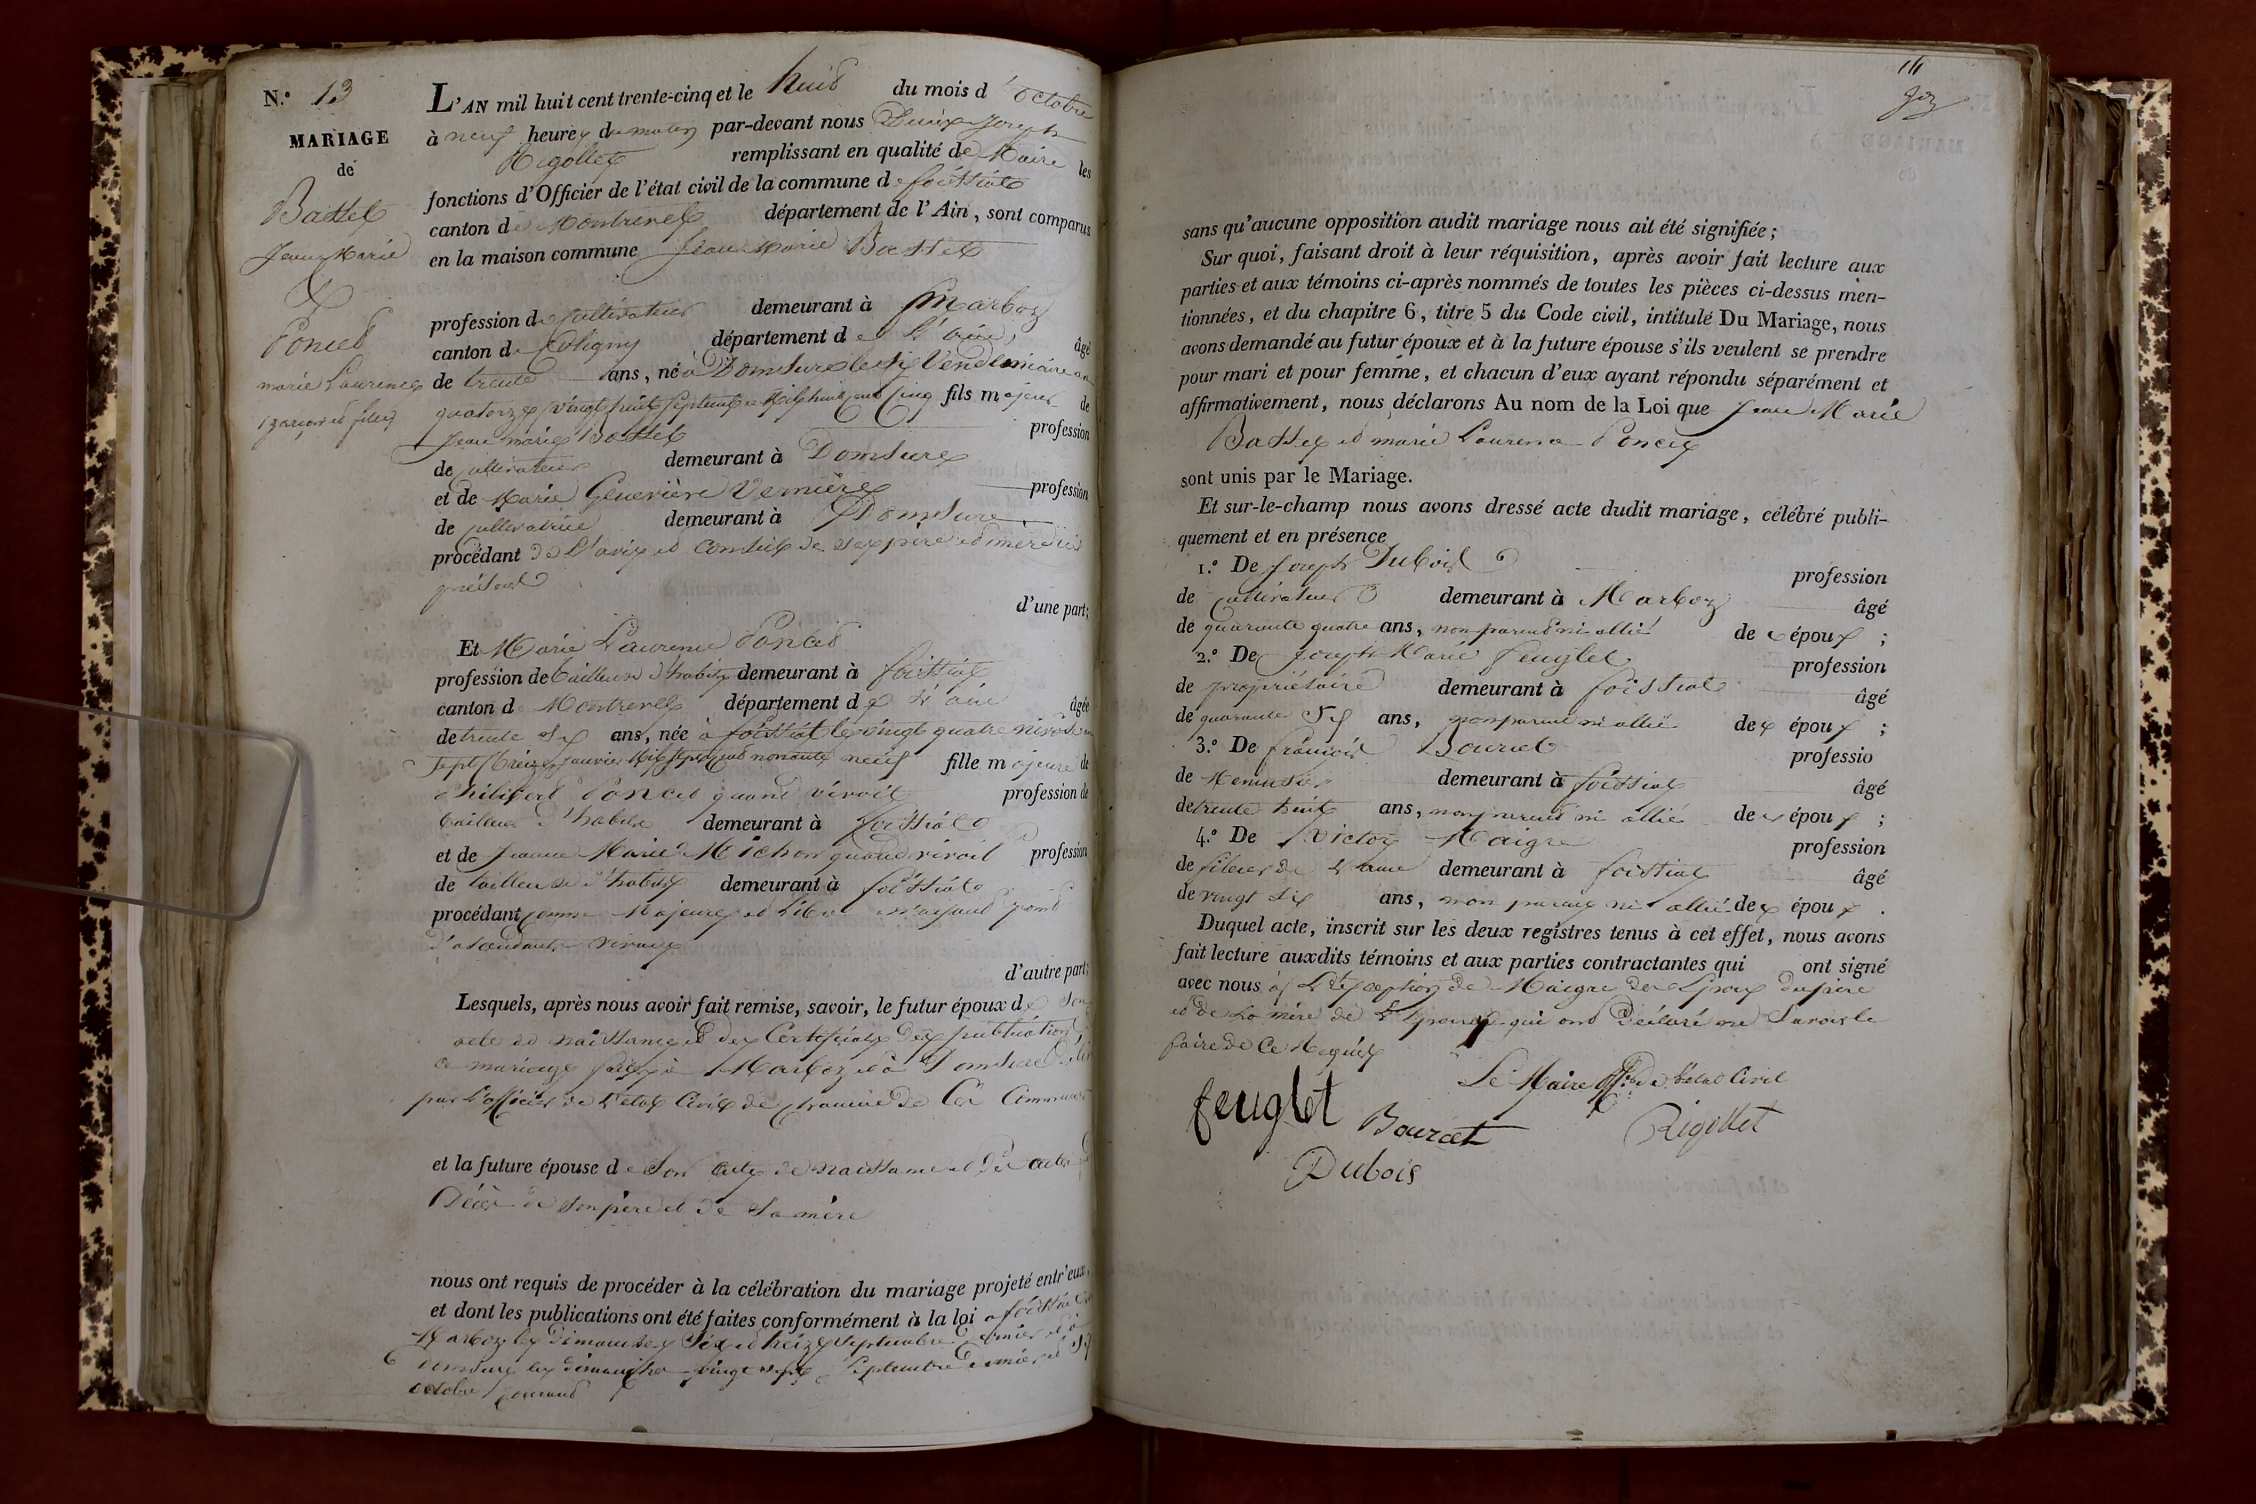 N.° 13
MARIAGE
de
Battet
Jean Marie
&
Poncet
marie Laurence
garçon et fille
L'AN mil huit cent trente-cinq et le huit du mois d'octobre
à neuf heures du matin par-devant nous Denis Joseph
Rigollet remplissant en qualité de Maire les
fonctions d'Officier de l'état civil de la commune de foissiat
canton de Montrevel département de l'Ain, sont comparus
en la maison commune Jean Marie Battet
profession de cultivateur demeurant à Marboz
canton de Coligny département de L'ain, âgé
de trente ans, né à Domsure le six Vendemiaire an
quatorze vingt huit septembre Mil huit cent cinq fils majeur de
Jean marie Battet profession
de cultivateur demeurant à Domsure
et de Marie Genevière Vernière profession
de cultivatrice demeurant à Domsure
procédant de L'avis et conseil de ses père et mère ici
présent
d'une part;
Et Marie Laurence Poncet
profession de tailleuse d'habits demeurant à foissiat
canton de Montrevel département de L'ain âgée
de trente six ans, née à foissiat le vingt quatre nivose an
sept treize janvier Mil sept cent nonante neuf fille majeure de
philibert Poncet quand vivoit profession de
tailleur d'habits demeurant à foissiat
et de Jeanne Marie Michon quand vivoit profession
de tailleuse d'habits demeurant à foissiat
procédant comme Majeure et Libre n'ayant point
d'ascendants vivants
d'autre part;
Lesquels, après nous avoir fait remise, savoir, le futur époux de son
acte de naissance et des Certificats des publications
de mariage faites à Marboz et à Domsure
par L'officier de L'etat Civil de chacune de Ces Communes
et la future épouse de Son acte de naissance et des actes de
Décès de son père et de Sa mère
nous ont requis de procéder à la célébration du mariage projeté entr'eux,
et dont les publications ont été faites conformément à la loi a foissiat et
Marboz les dimanches Six et treize septembre dernier et à
domsure les dimanches vingt sept septembre dernier et
octobre courant
sans qu'aucune opposition audit mariage nous ait été signifiée;
Sur quoi, faisant droit à leur réquisition, après avoir fait lecture aux
parties et aux témoins ci-après nommés de toutes les pièces ci-dessus men-
tionnées, et du chapitre 6, titre 5 du Code civil, intitulé Du Mariage, nous
avons demandé au futur époux et à la future épouse s'ils veulent se prendre
pour mari et pour femme, et chacun d'eux ayant répondu séparément et
affirmativement, nous déclarons Au nom de la Loi que Jean Marie
Battet et marie Laurence Poncet
sont unis par le Mariage.
Et sur-le-champ nous avons dressé acte dudit mariage, célébré publi-
quement et en présence
1.° De Joseph Dubois profession
de cultivateur demeurant à Marboz âgé
de quarante quatre ans, non parent ni allié des époux;
2.° De Joseph Marie feuglet profession
de propriétaire demeurant à foissiat âgé
de quarante six ans, non parent ni allié des époux;
3.° De françois Bourcet professio
de Menuisier demeurant à foissiat âgé
de trente huit ans, non parent ni allié des époux;
4.° De Victor Maigre profession
de demeurant à foissiat âgé
de vingt six ans, non parent ni allié des époux.
Duquel acte, inscrit sur les deux registres tenus à cet effet, nous avons
fait lecture auxdits témoins et aux parties contractantes qui ont signé
avec nous à L'exception de Maigre des Epoux du père
et de La mère de L'époux qui ont Déclaré ne Savoir le
faire de Ce Requis
Le Maire off. de L'etat Civil
feuglet Bourcet Rigollet
Dubois